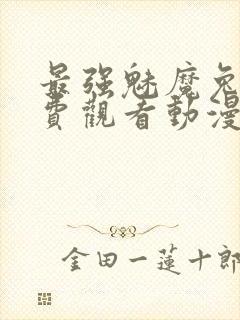 最强魅魔免
費觀看動漫
金田一蓮十郎